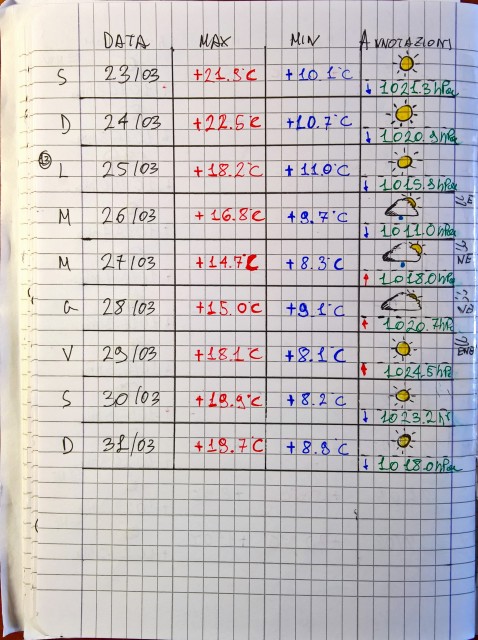 DATA MAX MIN ANNOTAZIONI
S 23/03 +21.8°C +10.1°C
↓ 1021.3hPa
D 24/03 +22.5°C +10.7°C
↓ 1020.9hPa
13 L 25/03 +18.2°C +11.0°C
↓ 1015.8hPa
M 26/03 +16.8°C +9.7°C
↓ 1011.0hPa
M 27/03 +14.7°C +8.3°C NE
↑ 1018.0hPa
G 28/03 +15.0°C +9.1°C
↑ 1020.7hPa
V 29/03 +18.1°C +8.1°C ENE
↑ 1024.5hPa
S 30/03 +19.9°C +8.2°C
↓ 1023.2h
D 31/03 +19.7°C +8.8°C
↓ 1018.0hPa